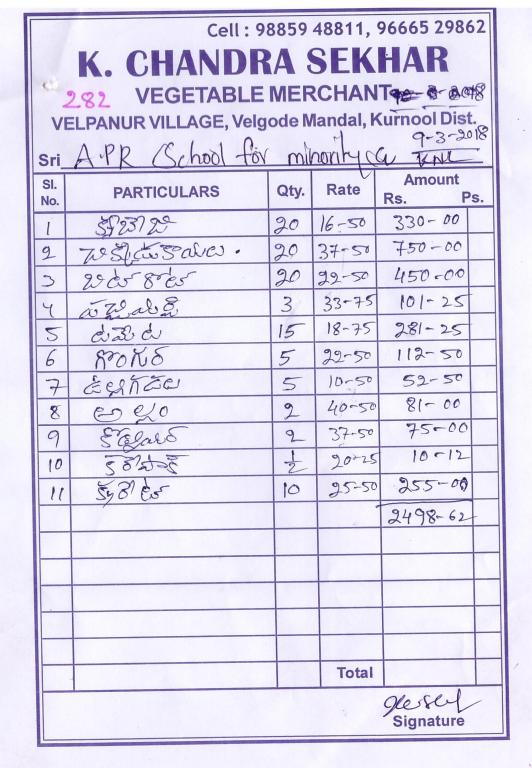 Cell : 98859 48811, 96665 29862
K. CHANDRA SEKHAR
282 VEGETABLE MERCHANT
VELPANUR VILLAGE, Velgode Mandal, Kurnool Dist.
9-3-2018
Sri A.P.R (School for minority (G) KNL
Sl. No. PARTICULARS Qty. Rate Amount Rs. Ps.
1 క్యాబేజి 20 16-50 330-00
2 చిక్కుడుకాయలు. 20 37-50 750-00
3 బిట్ రూట్ 20 22-50 450-00
4 పచ్చిమిర్చి 3 33-75 101-25
5 టమేట 15 18-75 281-25
6 గోంగుర 5 22-50 112-50
7 ఉల్లిగడ్డలు 5 10-50 52-50
8 అల్లం 2 40-50 81-00
9 2 37-50 75-00
10 కరేపాక్ 1/2 20-25 10-12
11 క్యారేట్ 10 25-50 255-00
2498-62
Total
Signature